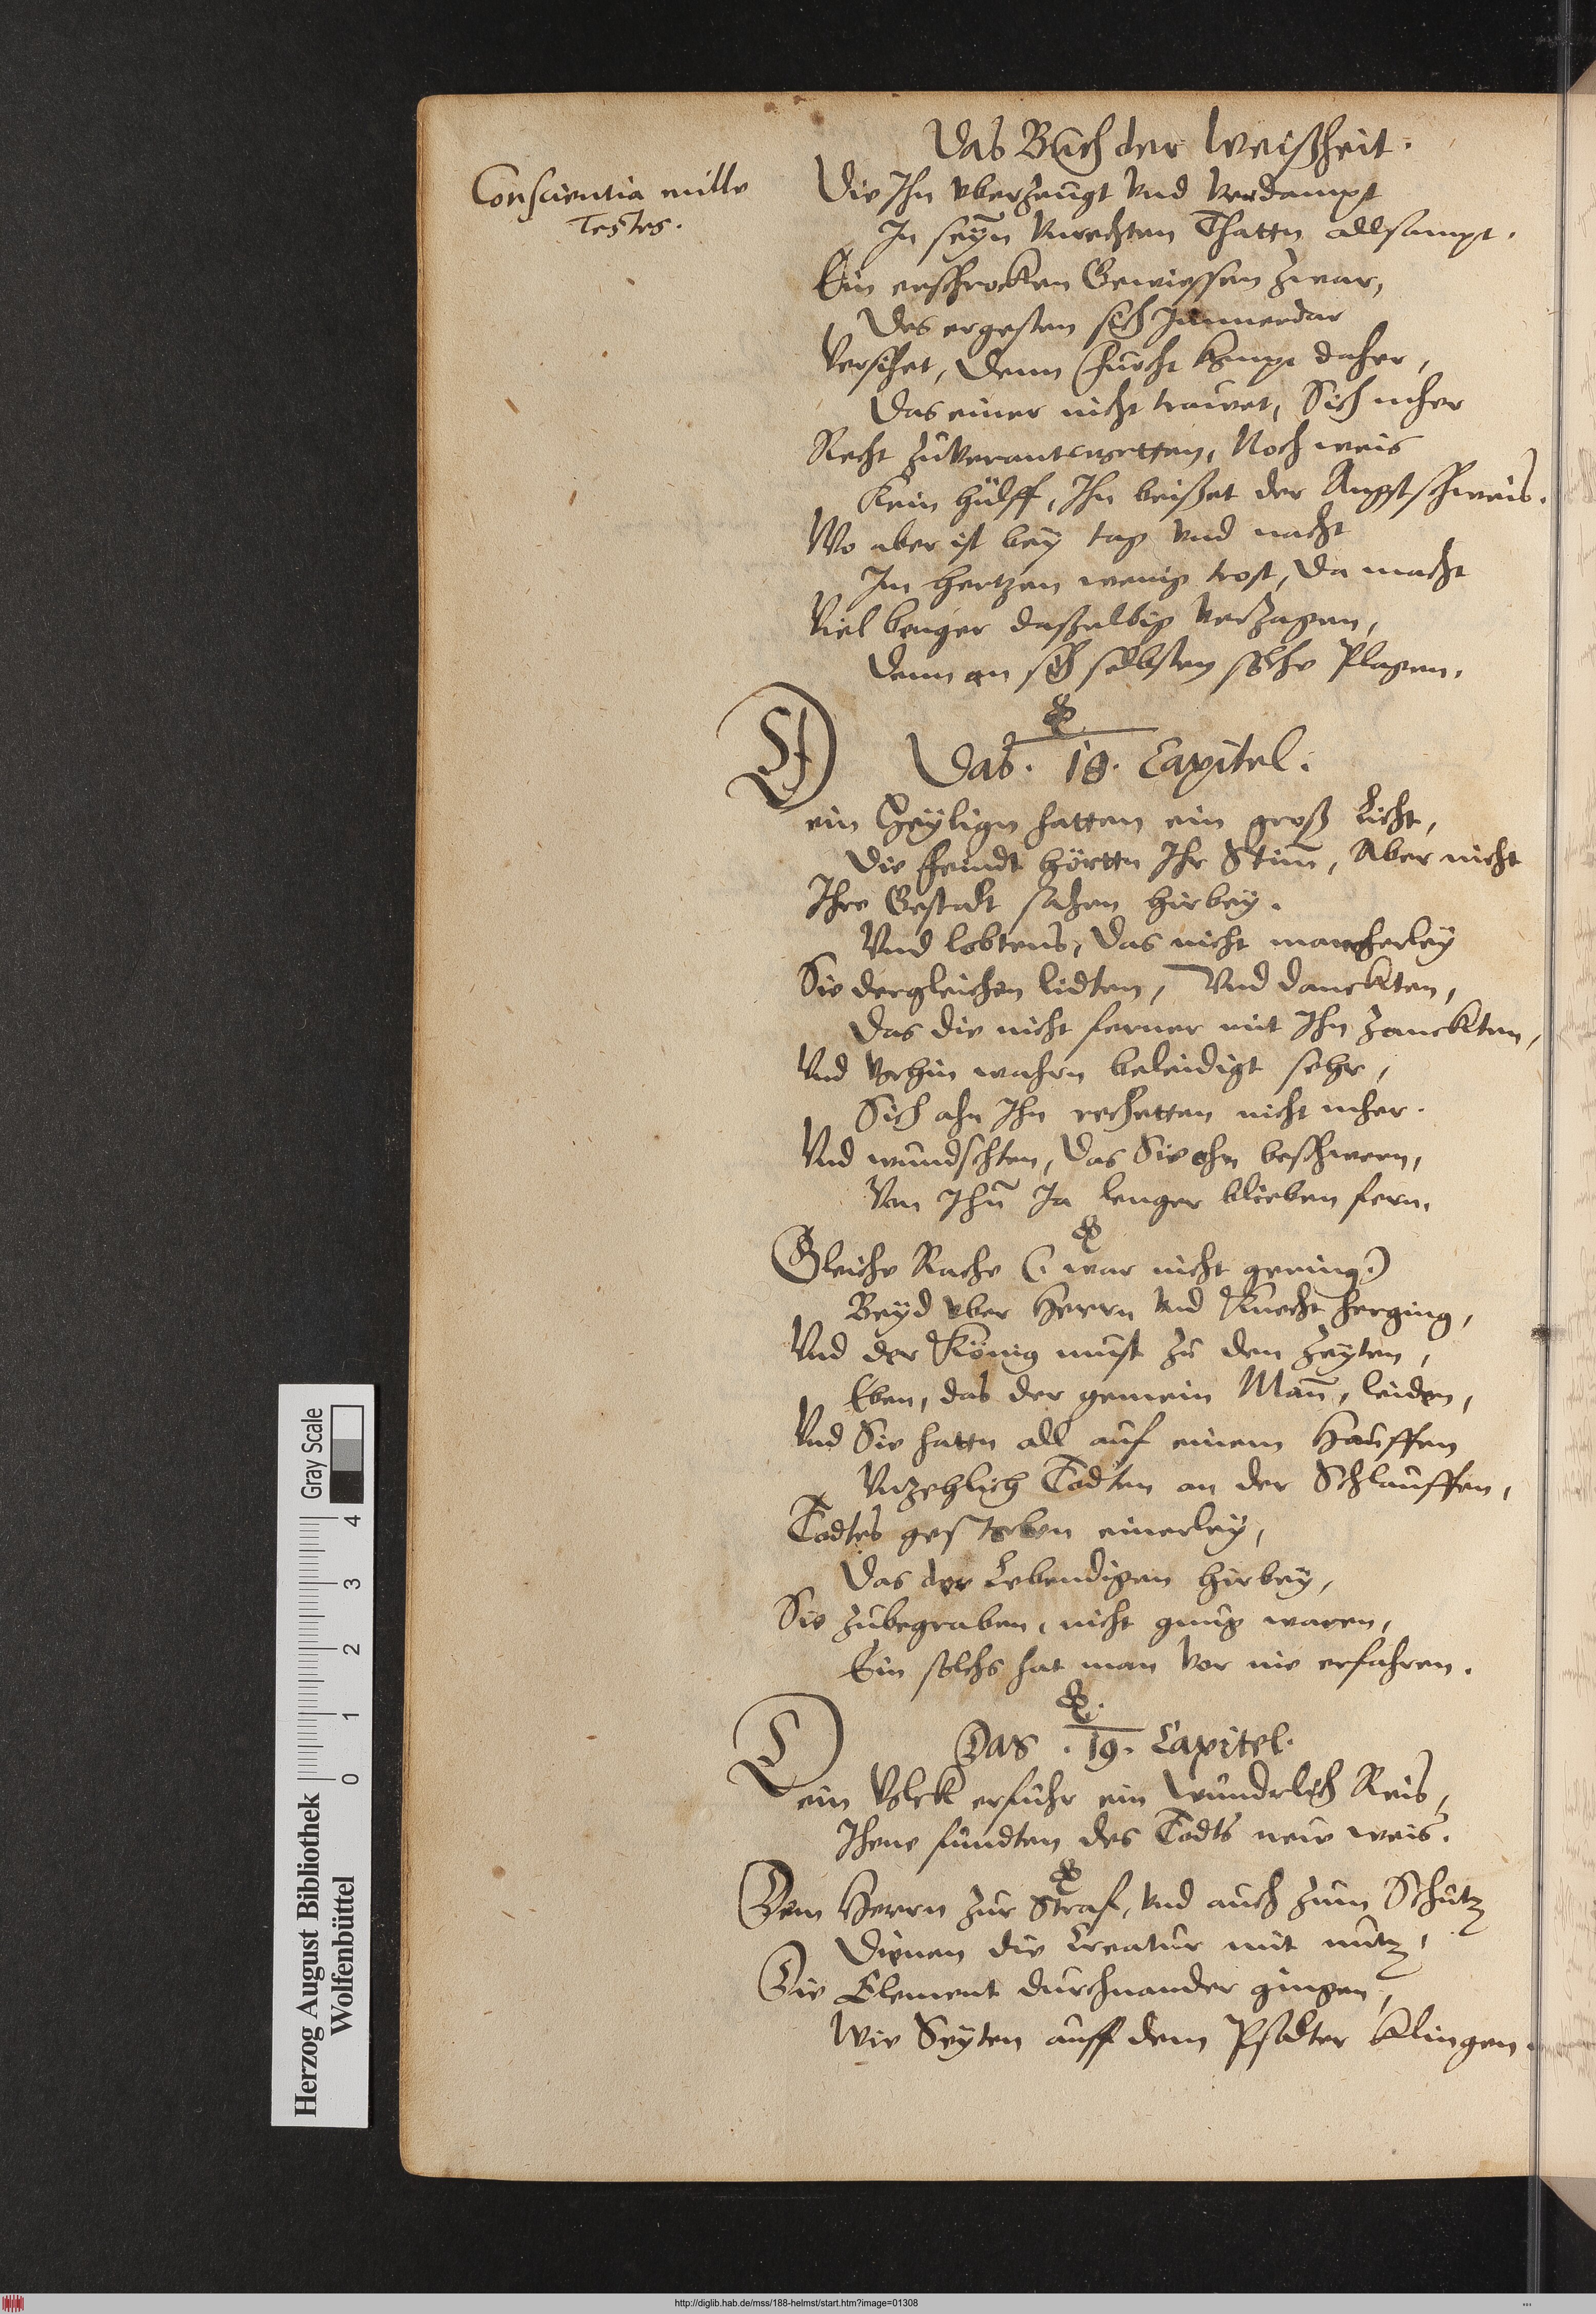 Das Buch der Weißheit.
Conscientia mille
Testes.
Die Ihn vberzeugt vnd verdampt
In seyn vnrechten Thattn allsampt.
Ein erschrocken Gewissen zwar,
Des ergesten sich Immerdar
Versihet, Denn furcht kompt daher,
Das einer nicht trawet, Sich mher
Recht zuverantwortten, Noch weis
Kein hülff, Ihn beißet der Angstschweis.
Wo aber ist bey tag vnd nacht
Im hertzen wenig trost, Da macht
Viel benger daßelbig verzagen,
Denn an sich selbsten solche Plagen.
Das. 18. Capitel.
Dein Heylign hatten ein groß Licht,
Die feindt hörttn Ihr Stim̄, Aber nicht
Ihre Gestalt sahen hirbey.
Vnd lobtens, Das nicht mancherley
Sie dergleichen lidten, Vnd danckten,
Das die nicht ferner mit Ihn zanckten,
Vnd vorhin wahrn beleidigt sehr,
Sich ahn Ihn recheten nicht mher.
Vnd wundschten, Das Sie ohn beschwern,
Von Ihn̄ Ia lenger blieben fern.
Gleiche Rache (: war nicht gering:)
Beyd vber Herrn vnd Knecht herging,
Vnd der König must zu den Zeyten,
Eben, das der gemein Man̄, leiden,
Vnd Sie hattn all auf einem Hauffen
Vnzehlich Todten an der Schlauffen,
Todtes gestorben einerley,
Das der Lebendigen hirbey,
Sie zubegraben, nicht gnug waren,
Ein solchs hat man vor nie erfahren.
Das. 19. Capitel.
Dein Volck erfuhr ein wundrlich Reis,
Ihene fundten des Todts new weis.
Dem Herrn zur Straf, vnd auch zum Schutz
Dienen die Creatur mit nutz,
Die Element durchnander gingen,
Wie Seyten auff dem Psalter klingen.
Herzog August Bibliothek
Wolfenbüttel
Gray Scale
0 1 2 3 4
http://diglib.hab.de/mss/188-helmst/start.htm?image=01308